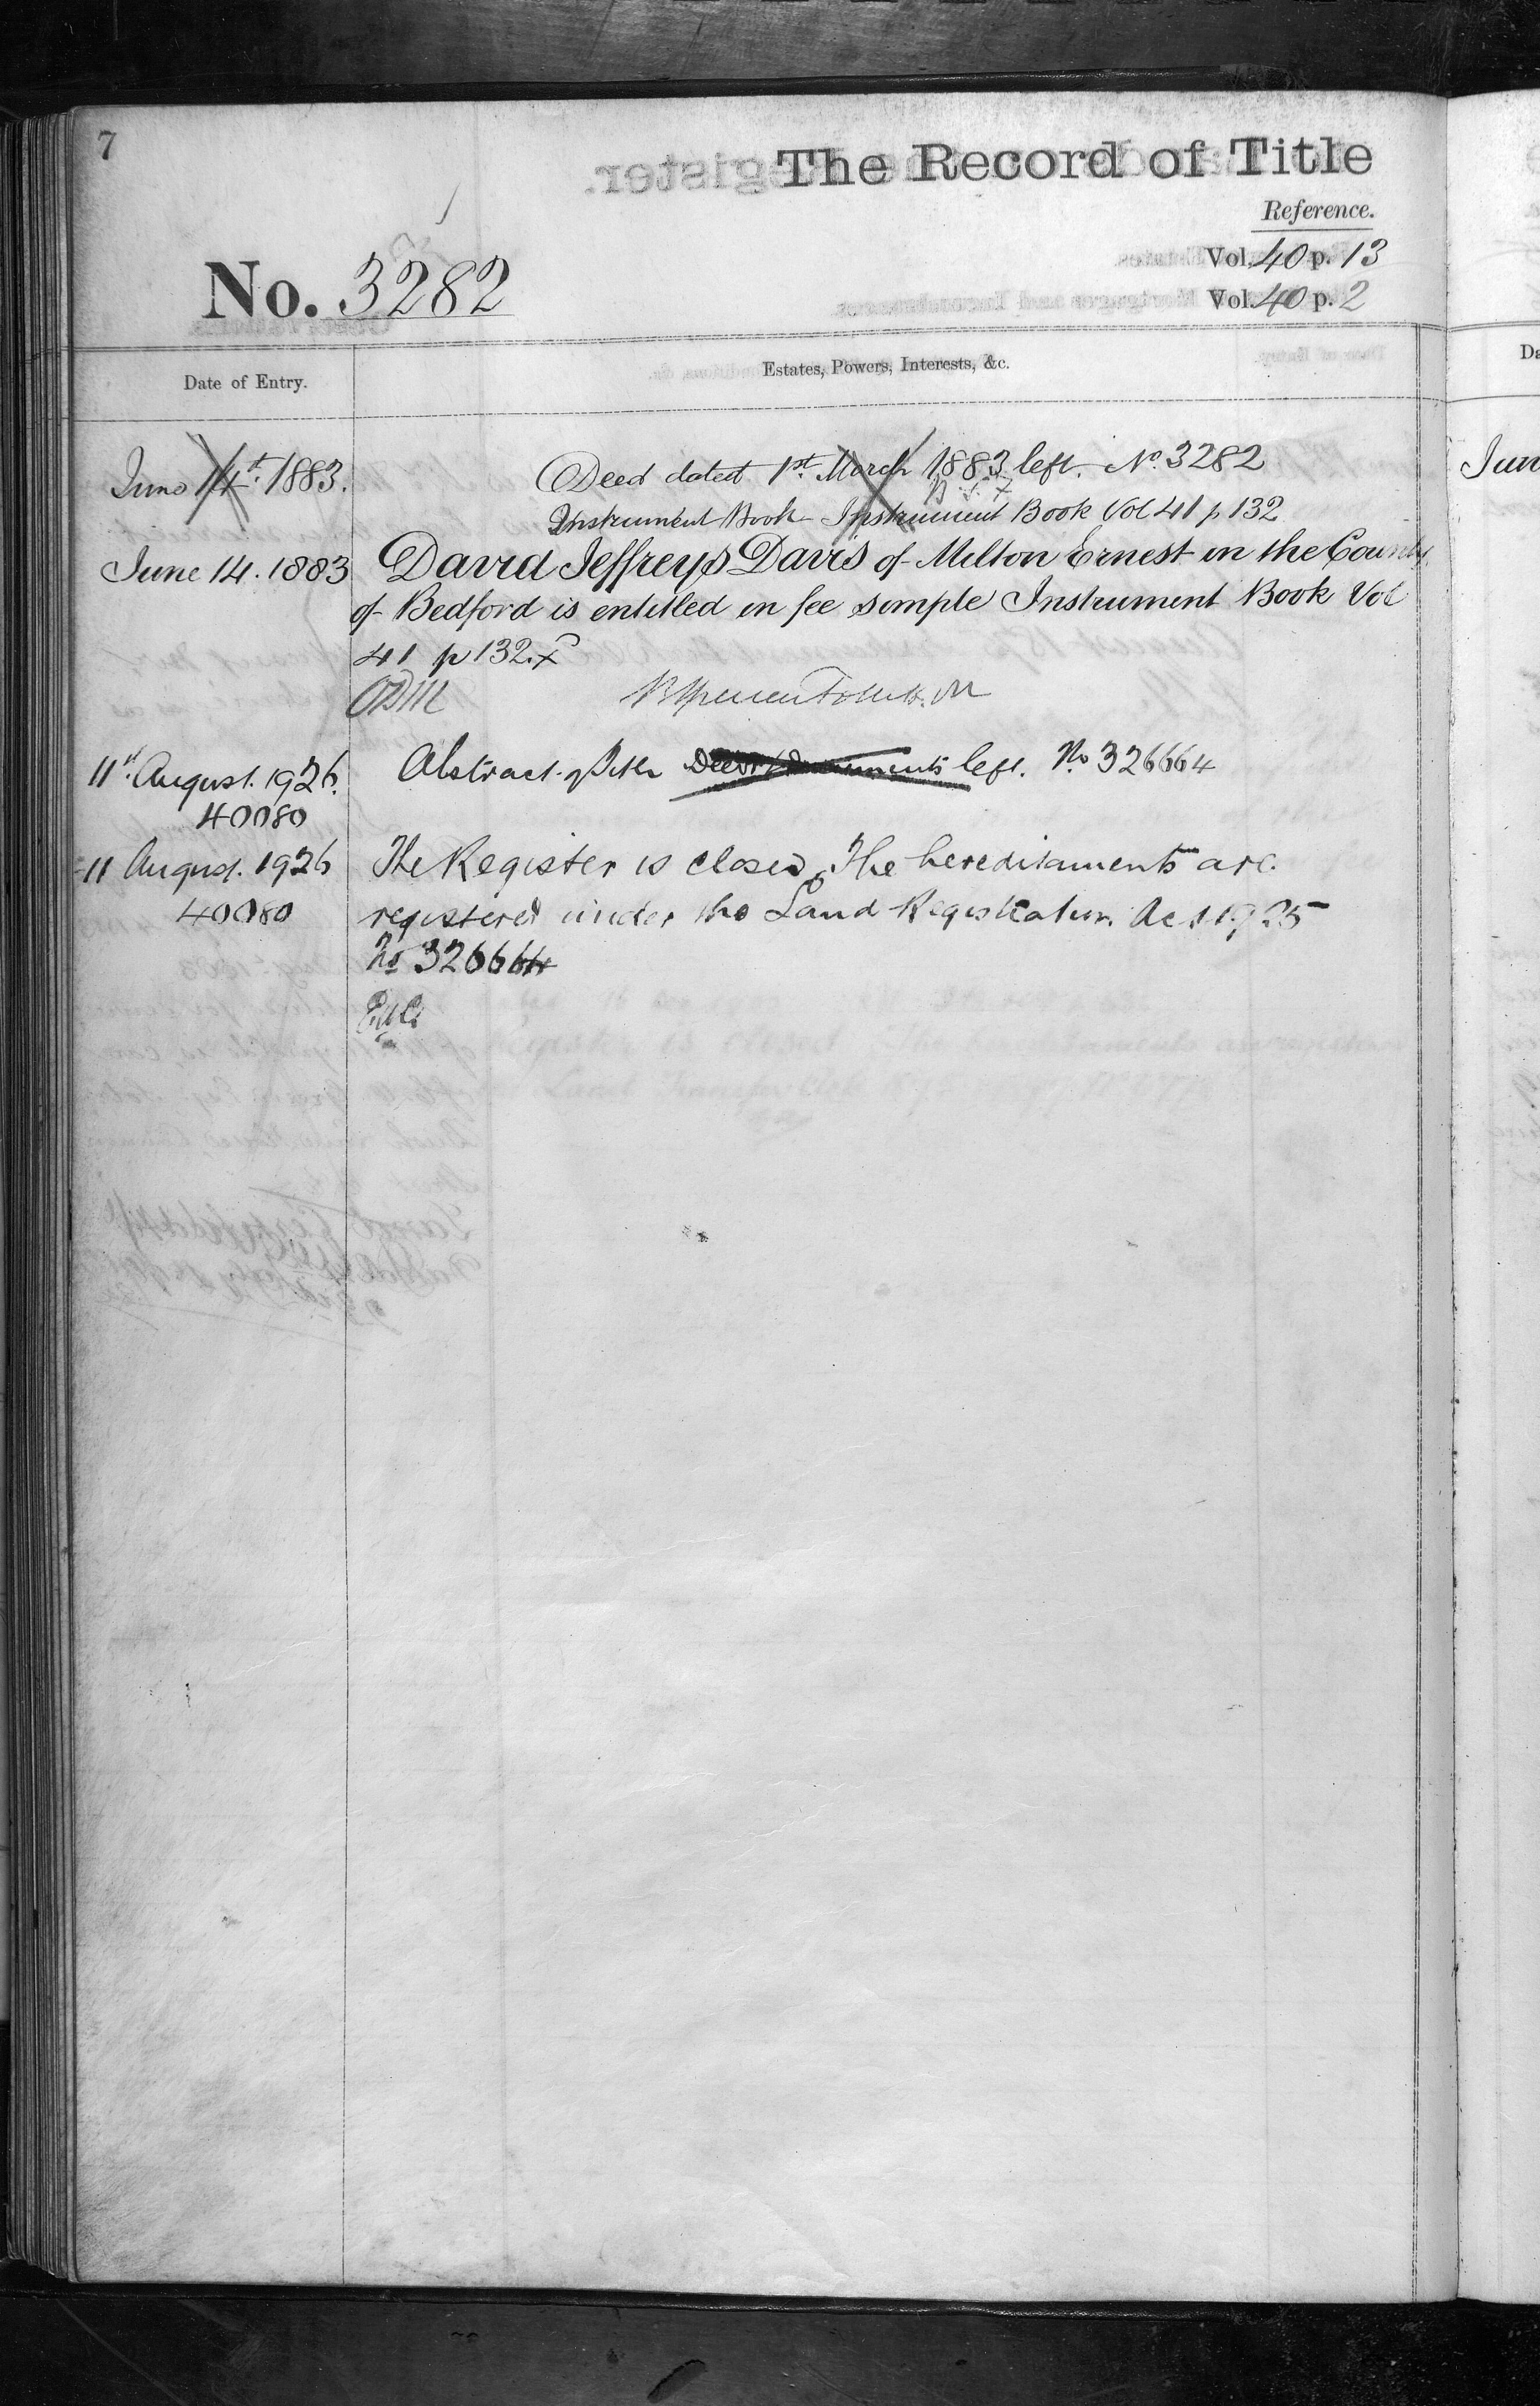 7
The Record of Title
Reference.
Vol. 40 p. 13
No. 3282
Vol. 40 p. 2
Date of Entry.
Estates, Powers, Interests, &c.
June 14th. 1883.
Deed dated 1st. March 1883 left. No. 3282
Instrument Book Instrument Book Vol 41 p 132
June 14. 1883
David Jeffreys Davis of Milton Ernest in the County
of Bedford is entitled in fee simple Instrument Book Vol
41 p 132.
11th August. 1926.
Abstract of Title Deeds & Documents left. No 326664
40080
11 August. 1926
The Register is closed. The hereditaments are
40080
registered under the Land Registration Act 1925
No 326664
Da
Jun